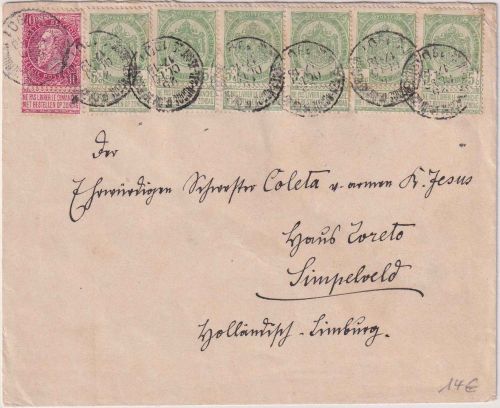 NE PAS LIVRER LE DIMANCHE
NIET BESTELLEN OP ZONDAG
Der
Ehrwürdigen Schwester Coleta v. armen K. Jesus
Haus Loreto
Simpelveld
Holländisch-Limburg.
14€